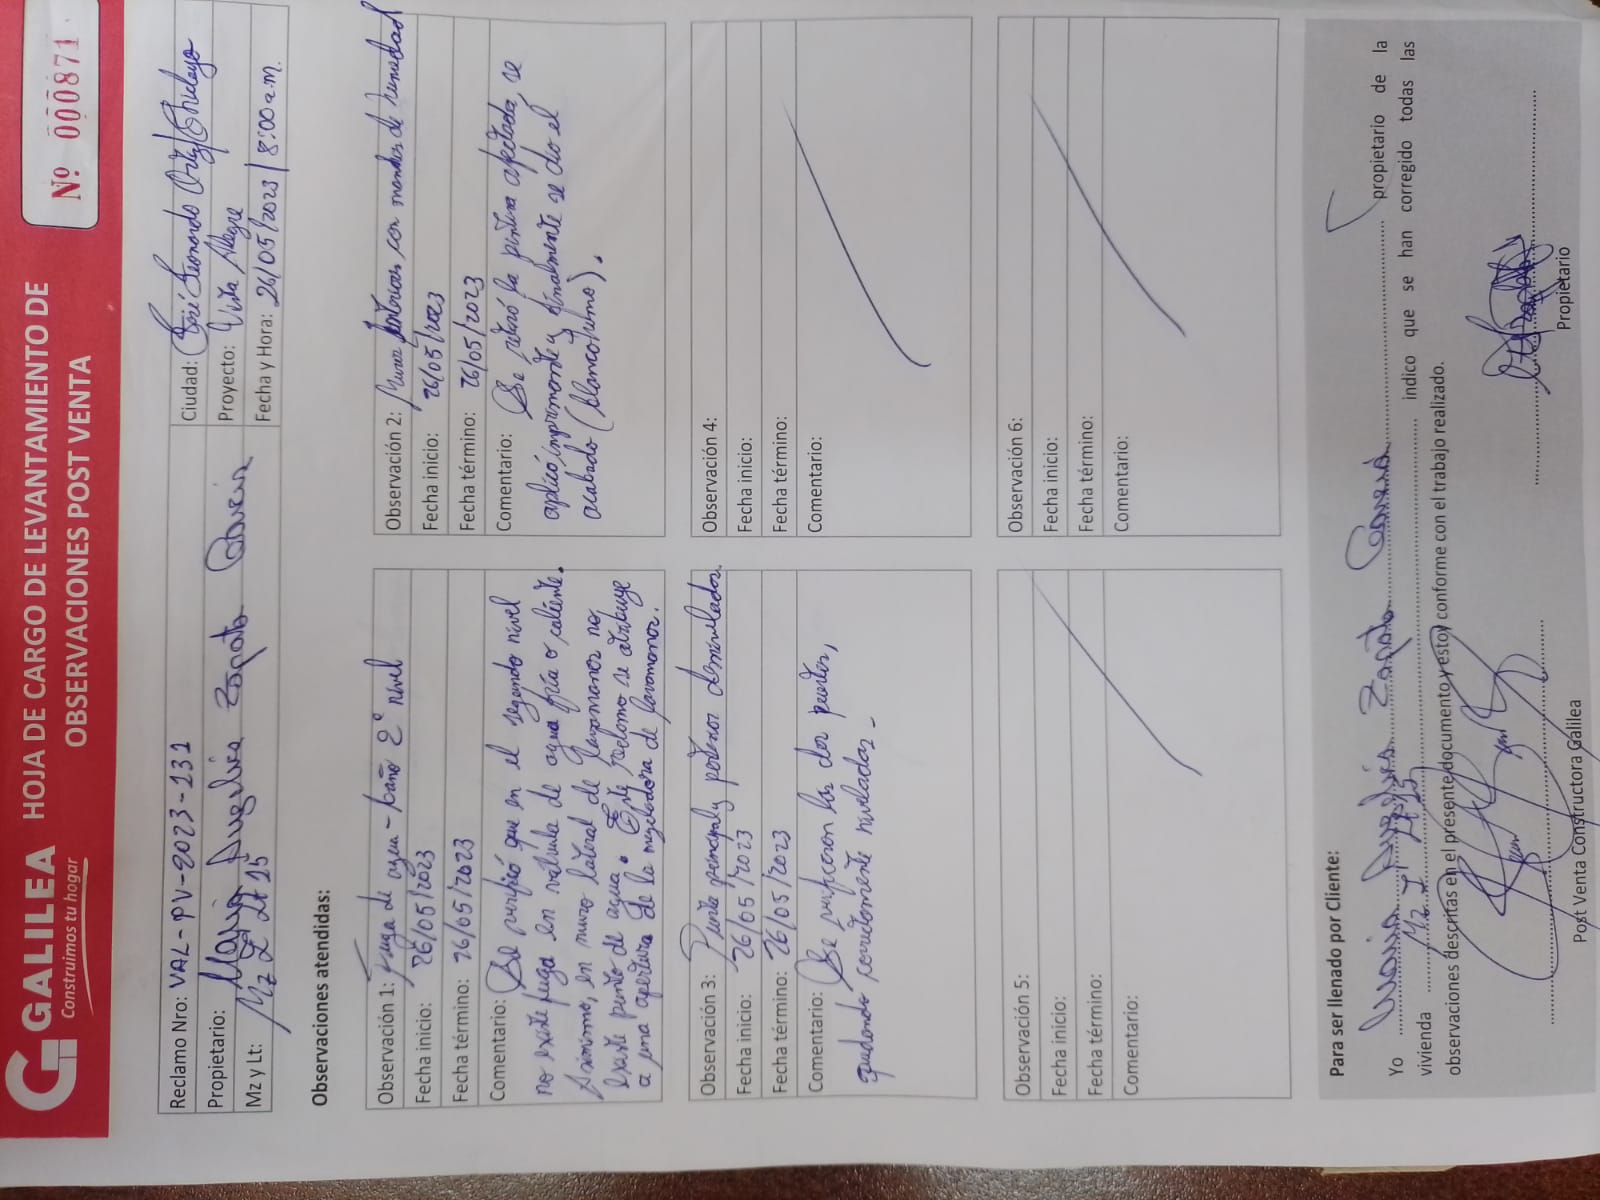 GALILEA
Construimos tu hogar
HOJA DE CARGO DE LEVANTAMIENTO DE
OBSERVACIONES POST VENTA
Nº 000871
Reclamo Nro: VAL-PV-2023-131
Ciudad: José Leonardo Ortiz/Chiclayo
Propietario: Maria Angelica Zapata
Proyecto: Vista Alegre
Mz y Lt: Mz Lt 15
Fecha y Hora: 26/05/2023 / 8:00 a.m.
Observaciones atendidas:
Observación 1: Fuga de agua - baño 2° nivel
Fecha inicio: 26/05/2023
Fecha término: 26/05/2023
Comentario: Se verificó que en el segundo nivel
no existe fuga en válvula de agua fría o caliente.
Asimismo, en muro lateral de lavamanos no
existe punto de agua. Este reclamo se atribuye
a una apertura de la mezcladora de lavamanos.
Observación 2: Muros con manchas de humedad
Fecha inicio: 26/05/2023
Fecha término: 26/05/2023
Comentario: Se retiró la pintura afectada, se
aplicó imprimante y finalmente se dio el
acabado (blanco humo).
Observación 3: Puerta principal y posterior desniveladas.
Fecha inicio: 26/05/2023
Fecha término: 26/05/2023
Comentario: Se las dos puertas,
quedando correctamente niveladas.
Observación 4:
Fecha inicio:
Fecha término:
Comentario:
Observación 5:
Fecha inicio:
Fecha término:
Comentario:
Observación 6:
Fecha inicio:
Fecha término:
Comentario:
Para ser llenado por Cliente:
Yo Maria Angelica Zapata propietario de la
vivienda Mz Lt 15 indico que se han corregido todas las
observaciones descritas en el presente documento y estoy conforme con el trabajo realizado.
Post Venta Constructora Galilea
Propietario